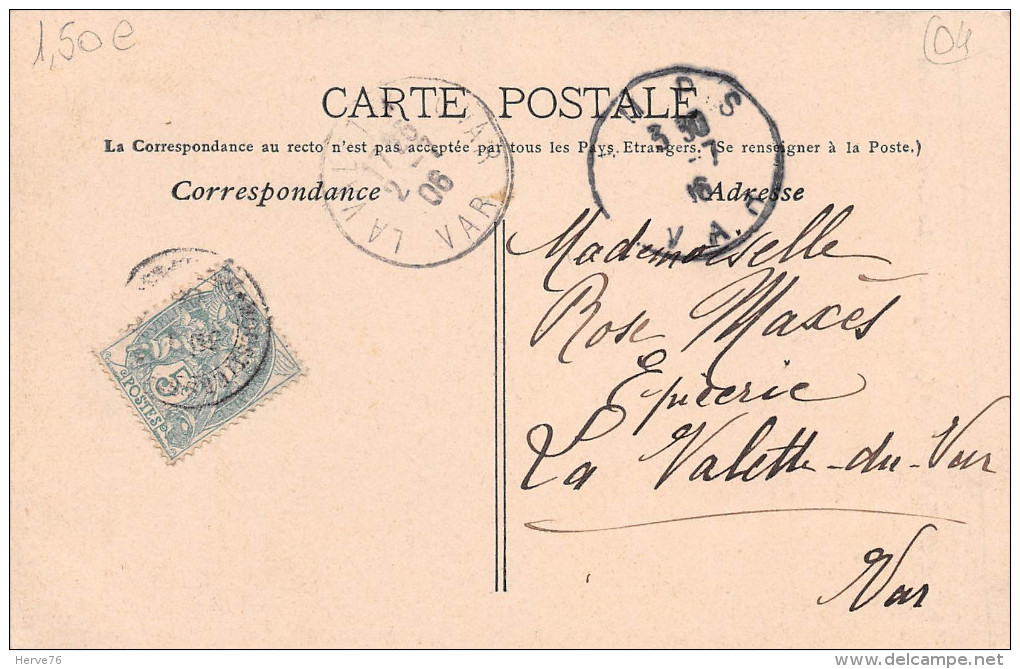 1,50e
04
CARTE POSTALE
La Correspondance au recto n'est pas acceptée par tous les Pays Etrangers. (Se renseigner à la Poste.)
Correspondance
Adresse
LA VALETTE VAR
2 06
VAR
3 30
7
16
VAR
Mademoiselle
Rose Maxès
Epicerie
La Valette-du-Var
Var
5c
POSTES
Herve76
delcampe.net